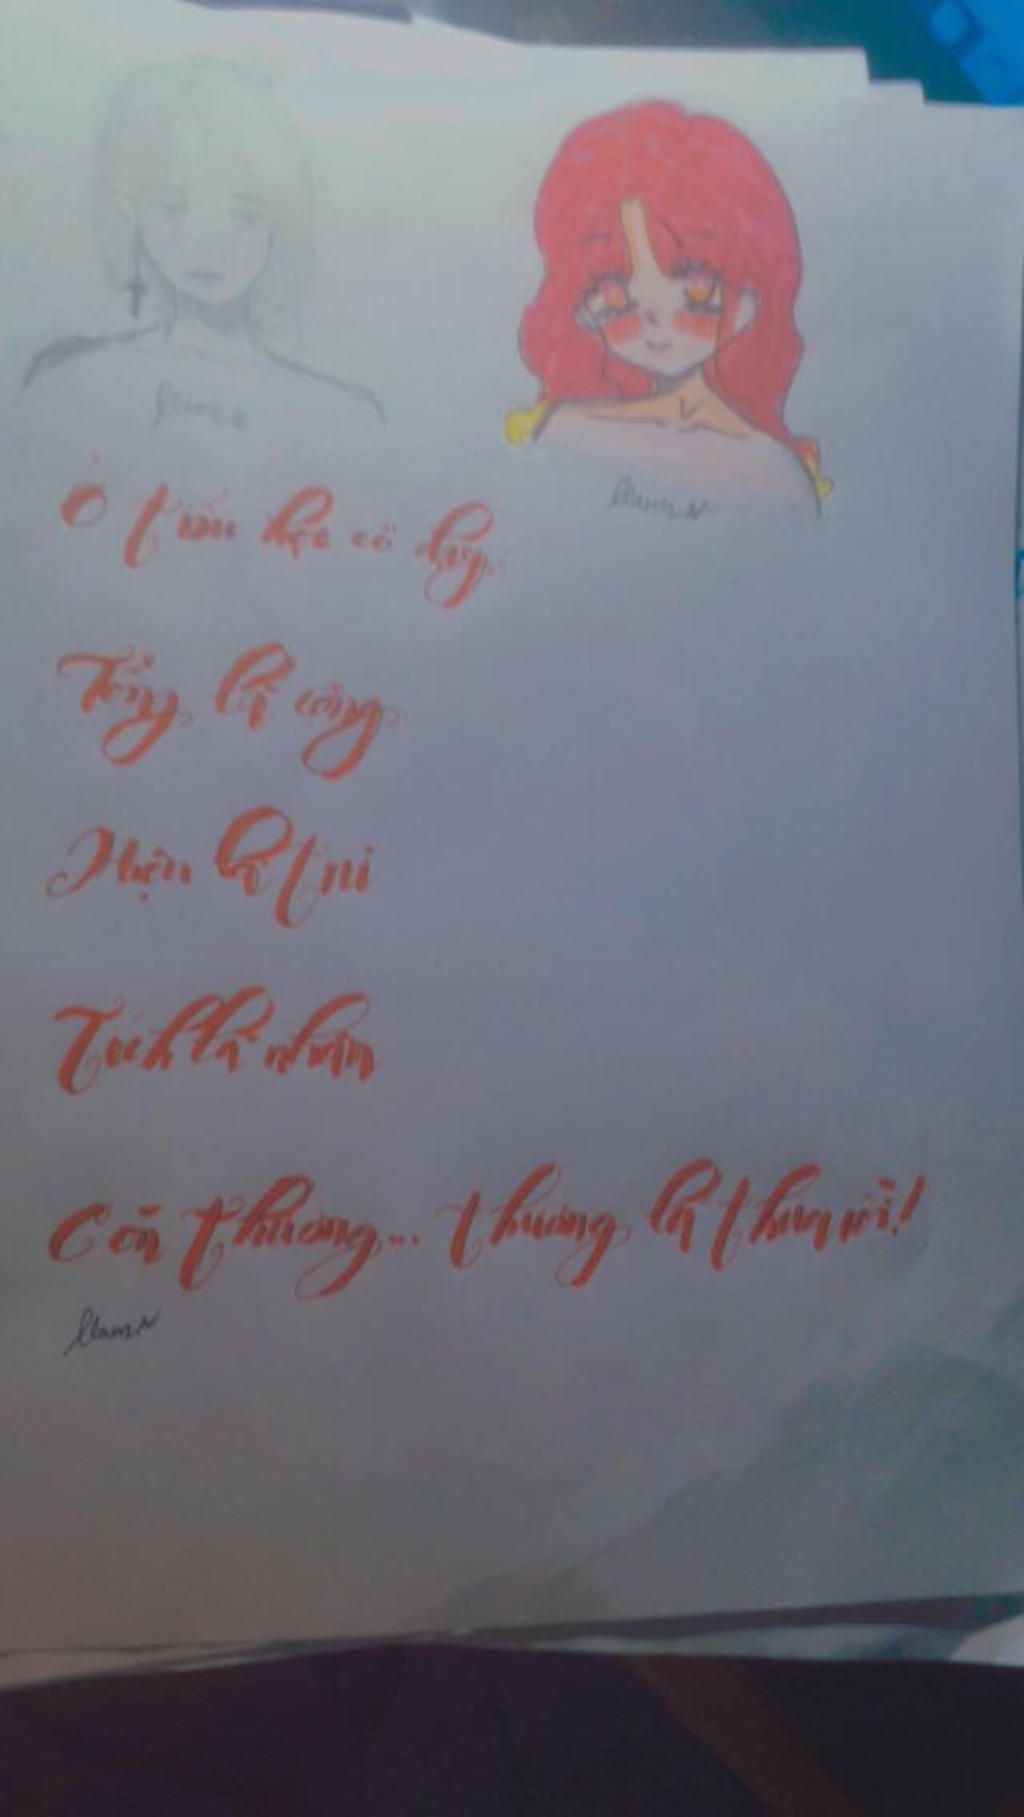 Ở tiểu học cô dạy..
Tổng là cộng
Hiệu là trừ
Tích là nhân
Còn thương... thương là thua rồi!